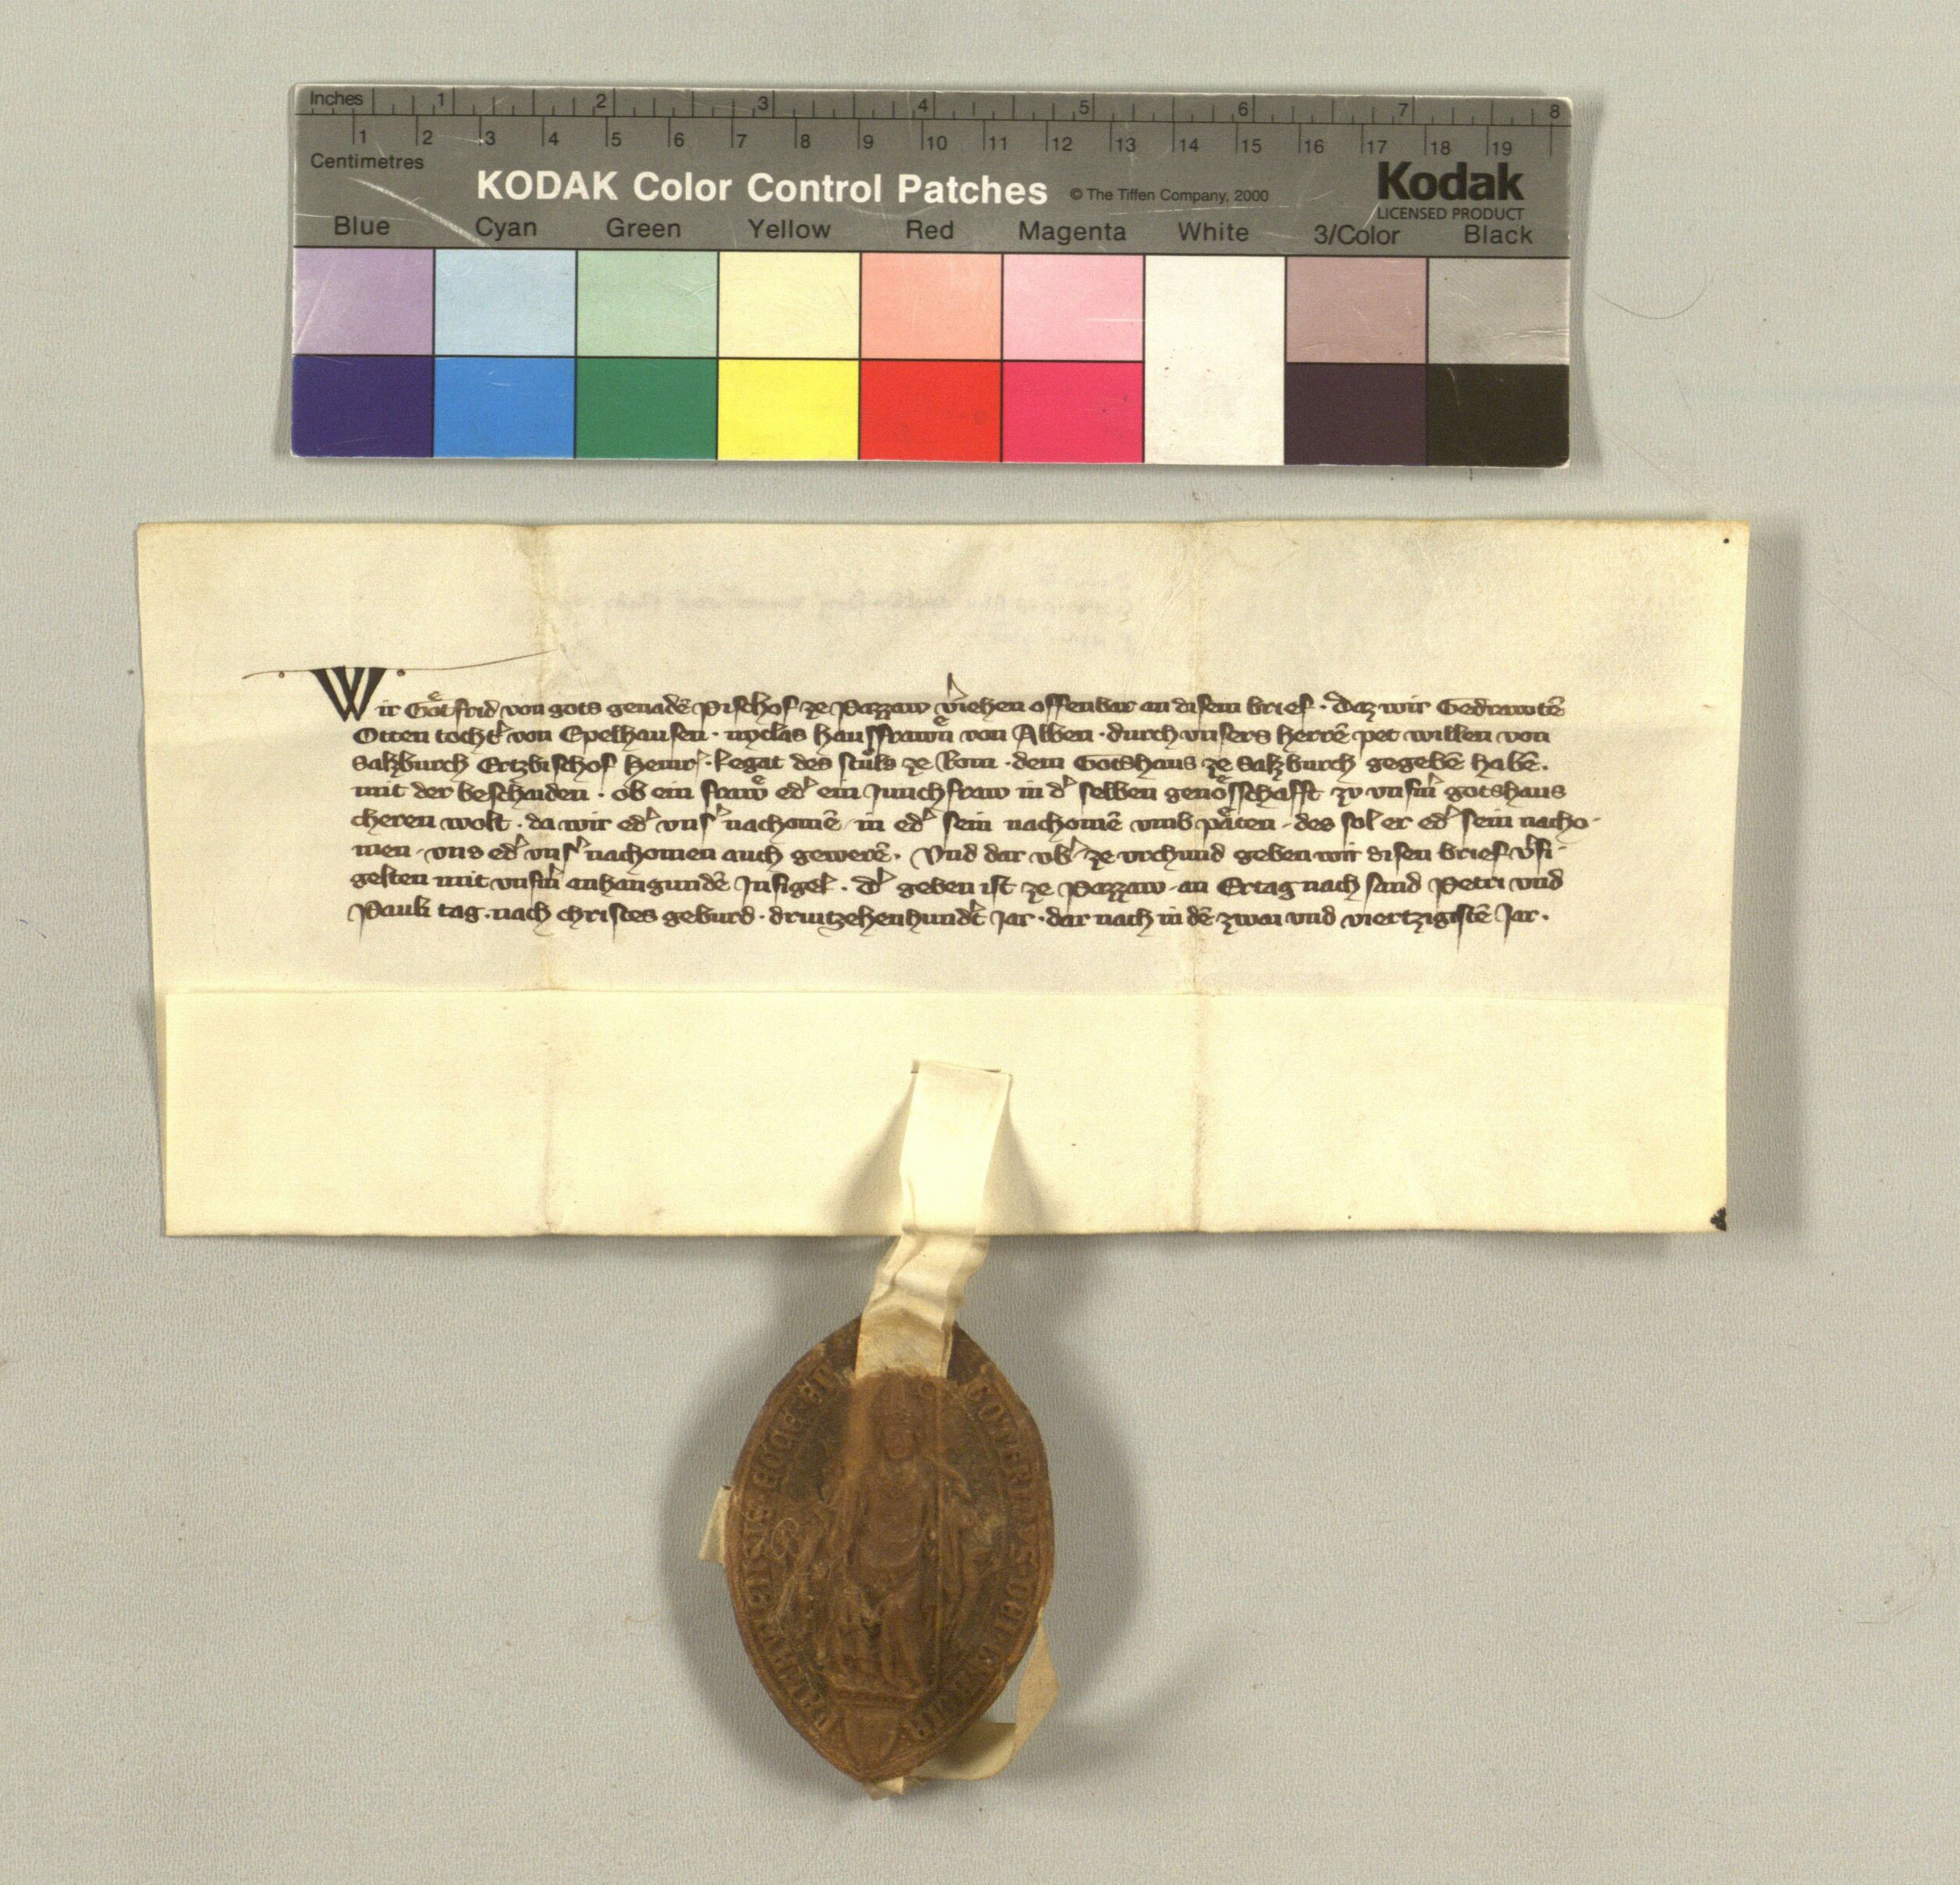 Inches 1 2 3 4 5 6 7 8
1 2 3 4 5 6 7 8 9 10 11 12 13 14 15 16 17 18 19
Centimetres
KODAK Color Control Patches © The Tiffen Company, 2000 Kodak
LICENSED PRODUCT
Blue Cyan Green Yellow Red Magenta White 3/Color Black
Wir Goͤtfrid von gots genadē Pischof ze Pazzaw v̾iehen offenbar an disem brief · daz wir Gedrawtē
Otten tocht̾ von Epelhausen · nyclas hausfrawn̊ von Alben · durch vnsers herrē pet willen von
Salzburch Ertzbischof Heinr̾ · Legat des stůls ze Rom · dem Gotshaus ze Salzburch gegebē habē ·
mit der beschaiden · ob ein frawͤ ed̾ ein Junchfraw in d̾ selben genoͤsschafft zv vnsm̾ gotshaus
cheren wolt · da wir ed̾ vns̾ nachomē in ed̾ sein nachomē vmb paͤten · des sol er ed̾ sein nacho-
men · vns ed̾ vns̾ nachomen auch gewerē · Vnd dar vb̾ ze vrchund geben wir disen brief v̾si-
gelten mit vnsm̾ anhangundē Insigel · d̾ geben ist ze Pazzaw · an Ertag nach sand Petri vnd
Pauls tag · nach christes geburd · driutzehenhund̾t Jar · dar nach in dē zwai vnd viertzigistē Jar ·
GOTFRID S DEI GRACIA
PATAVIENSIS ECCLE EP